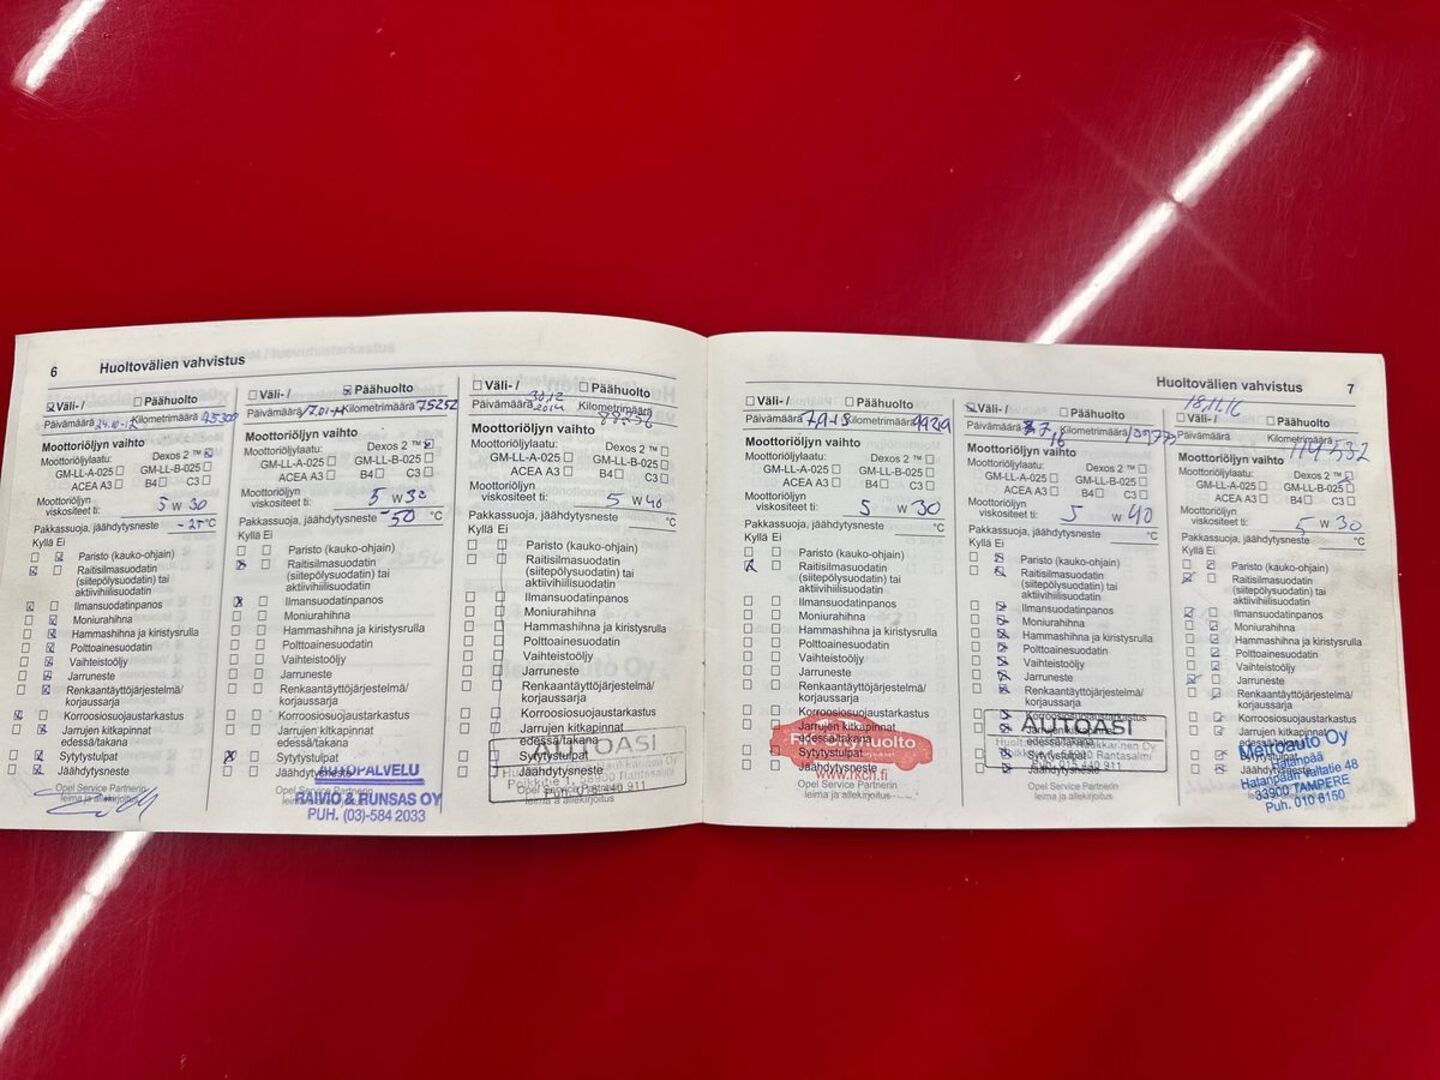 6 Huoltovälien vahvistus
Väli- / Päähuolto
Päivämäärä 24.10-12 Kilometrimäärä 45300
Moottoriöljyn vaihto
Moottoriöljylaatu: Dexos 2 ™
GM-LL-A-025 GM-LL-B-025
ACEA A3 B4 C3
Moottoriöljyn
viskositeet ti: 5 W 30
Pakkassuoja, jäähdytysneste °C
Kyllä Ei
Paristo (kauko-ohjain)
Raitisilmasuodatin
(siitepölysuodatin) tai
aktiivihiilisuodatin
Ilmansuodatinpanos
Moniurahihna
Hammashihna ja kiristysrulla
Polttoainesuodatin
Vaihteistoöljy
Jarruneste
Renkaantäyttöjärjestelmä/
korjaussarja
Korroosiosuojaustarkastus
Jarrujen kitkapinnat
edessä/takana
Sytytystulpat
Jäähdytysneste
Opel Service Partnerin
leima ja allekirjoitus
Väli- / Päähuolto
Päivämäärä Kilometrimäärä 75252
Moottoriöljyn vaihto
Moottoriöljylaatu: Dexos 2 ™
GM-LL-A-025 GM-LL-B-025
ACEA A3 B4 C3
Moottoriöljyn
viskositeet ti: 5 W 30
Pakkassuoja, jäähdytysneste -50 °C
Kyllä Ei
Paristo (kauko-ohjain)
Raitisilmasuodatin
(siitepölysuodatin) tai
aktiivihiilisuodatin
Ilmansuodatinpanos
Moniurahihna
Hammashihna ja kiristysrulla
Polttoainesuodatin
Vaihteistoöljy
Jarruneste
Renkaantäyttöjärjestelmä/
korjaussarja
Korroosiosuojaustarkastus
Jarrujen kitkapinnat
edessä/takana
Sytytystulpat
Jäähdytysneste
AUTOPALVELU
Opel Service Partnerin
RAIVIO & RUNSAS OY
leima ja allekirjoitus
PUH. (03)-584 2033
Väli- / Päähuolto
Päivämäärä 30.12 2014 Kilometrimäärä
Moottoriöljyn vaihto
Moottoriöljylaatu: Dexos 2 ™
GM-LL-A-025 GM-LL-B-025
ACEA A3 B4 C3
Moottoriöljyn
viskositeet ti: 5 W 40
Pakkassuoja, jäähdytysneste °C
Kyllä Ei
Paristo (kauko-ohjain)
Raitisilmasuodatin
(siitepölysuodatin) tai
aktiivihiilisuodatin
Ilmansuodatinpanos
Moniurahihna
Hammashihna ja kiristysrulla
Polttoainesuodatin
Vaihteistoöljy
Jarruneste
Renkaantäyttöjärjestelmä/
korjaussarja
Korroosiosuojaustarkastus
Jarrujen kitkapinnat
edessä/takana
AUTOASI
Sytytystulpat
Jäähdytysneste
Opel Service Partnerin
leima ja allekirjoitus
Huoltovälien vahvistus 7
Väli- / Päähuolto
Päivämäärä 7.9.15 Kilometrimäärä
Moottoriöljyn vaihto
Moottoriöljylaatu: Dexos 2 ™
GM-LL-A-025 GM-LL-B-025
ACEA A3 B4 C3
Moottoriöljyn
viskositeet ti: 5 W 30
Pakkassuoja, jäähdytysneste °C
Kyllä Ei
Paristo (kauko-ohjain)
Raitisilmasuodatin
(siitepölysuodatin) tai
aktiivihiilisuodatin
Ilmansuodatinpanos
Moniurahihna
Hammashihna ja kiristysrulla
Polttoainesuodatin
Vaihteistoöljy
Jarruneste
Renkaantäyttöjärjestelmä/
korjaussarja
Korroosiosuojaustarkastus
Jarrujen kitkapinnat
edessä/takana
Sytytystulpat
Jäähdytysneste
www.rkch.fi
Opel Service Partnerin
leima ja allekirjoitus
Väli- / Päähuolto
Päivämäärä Kilometrimäärä
Moottoriöljyn vaihto
Moottoriöljylaatu: Dexos 2 ™
GM-LL-A-025 GM-LL-B-025
ACEA A3 B4 C3
Moottoriöljyn
viskositeet ti: 5 W 40
Pakkassuoja, jäähdytysneste °C
Kyllä Ei
Paristo (kauko-ohjain)
Raitisilmasuodatin
(siitepölysuodatin) tai
aktiivihiilisuodatin
Ilmansuodatinpanos
Moniurahihna
Hammashihna ja kiristysrulla
Polttoainesuodatin
Vaihteistoöljy
Jarruneste
Renkaantäyttöjärjestelmä/
korjaussarja
Korroosiosuojaustarkastus
AUTOASI
Jarrujen kitkapinnat
edessä/takana
Sytytystulpat
Jäähdytysneste
Puh. 015 440 911
Opel Service Partnerin
leima ja allekirjoitus
18.11.16
Väli- / Päähuolto
Päivämäärä Kilometrimäärä 114 532
Moottoriöljyn vaihto
Moottoriöljylaatu: Dexos 2 ™
GM-LL-A-025 GM-LL-B-025
ACEA A3 B4 C3
Moottoriöljyn
viskositeet ti: 5 W 30
Pakkassuoja, jäähdytysneste °C
Kyllä Ei
Paristo (kauko-ohjain)
Raitisilmasuodatin
(siitepölysuodatin) tai
aktiivihiilisuodatin
Ilmansuodatinpanos
Moniurahihna
Hammashihna ja kiristysrulla
Polttoainesuodatin
Vaihteistoöljy
Jarruneste
Renkaantäyttöjärjestelmä/
korjaussarja
Korroosiosuojaustarkastus
Jarrujen kitkapinnat
edessä/takana
Sytytystulpat
Jäähdytysneste
Metroauto Oy
Hatanpää
Hatanpään valtatie 48
33900 TAMPERE
Puh. 010 6150